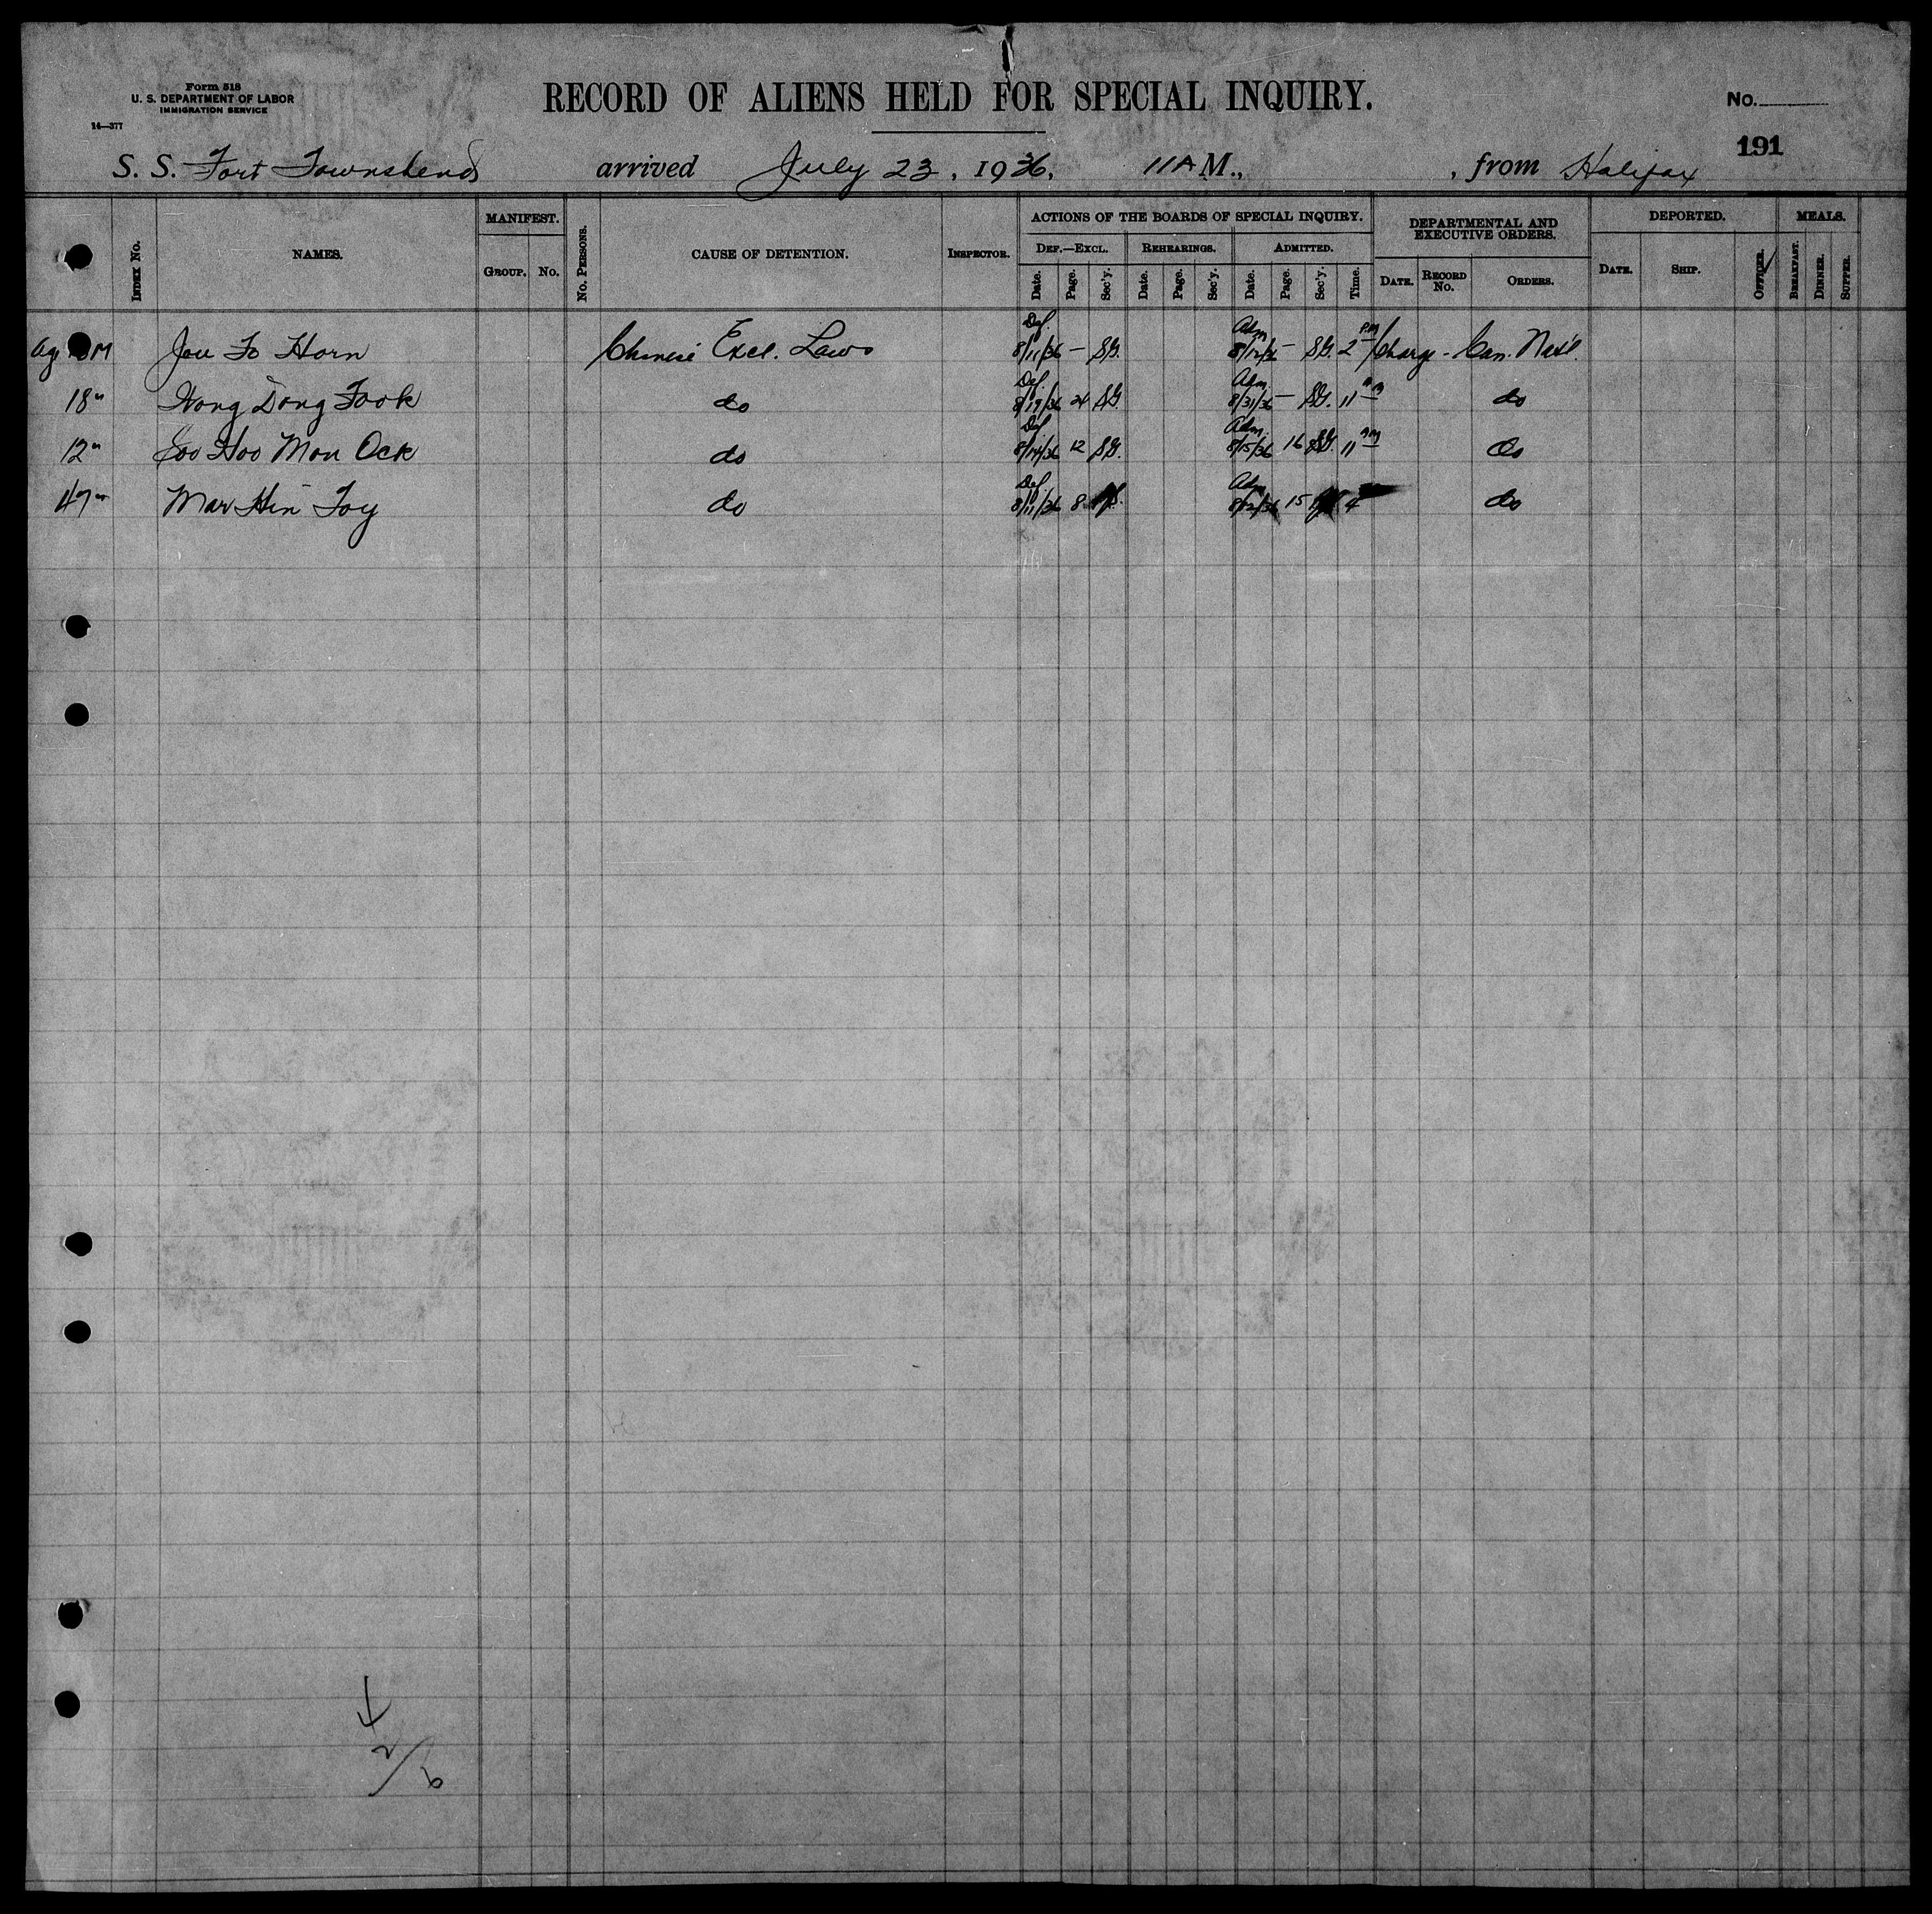 Form 518
U. S. DEPARTMENT OF LABOR
IMMIGRATION SERVICE
14—377
RECORD OF ALIENS HELD FOR SPECIAL INQUIRY.
No.
191
S. S. Fort Townshend arrived July 23, 1936, 11 A M., , from Halifax
INDEX NO. NAMES. MANIFEST. GROUP. NO. NO. PERSONS. CAUSE OF DETENTION. INSPECTOR. ACTIONS OF THE BOARDS OF SPECIAL INQUIRY. DEPARTMENTAL AND EXECUTIVE ORDERS. DEPORTED. MEALS.
DEF.—EXCL. REHEARINGS. ADMITTED.
Date. Page. Sec'y. Date. Page. Sec'y. Date. Page. Sec'y. Time. DATE. RECORD NO. ORDERS. DATE. SHIP. OFFICER. BREAKFAST. DINNER. SUPPER.
Jou Fo Horn Chinese Excl. Laws Def. 8/11/36 — S.G. Adm. 8/12/36 — S.G. 2 PM Charge - Can. Nat'l.
18 " Wong Dong Fook do Def. 8/19/36 24 S.G. Adm. 8/31/36 — S.G. 11 AM do
12 " Soo Hoo Mon Ock do Def. 8/14/36 12 S.G. Adm. 8/15/36 16 S.G. 11 AM do
47 " Mar Hin Foy do Def. 8/11/36 8 Adm. 8/12/36 15 4 do
4
2/6